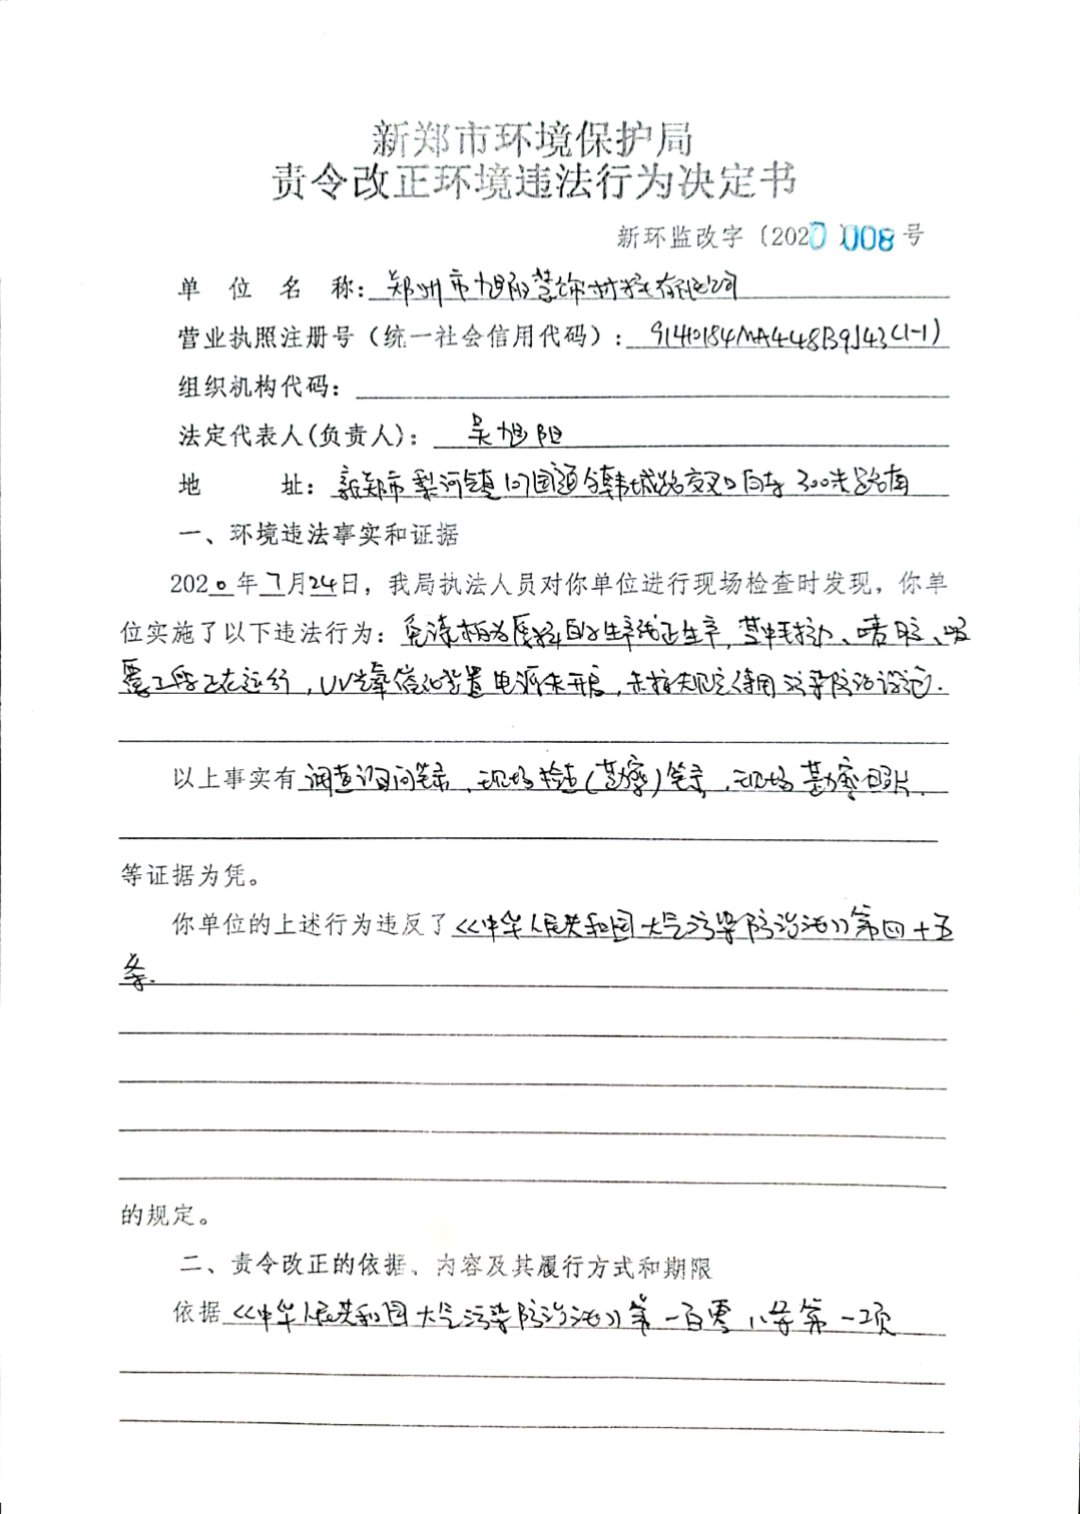 新郑市环境保护局
责令改正环境违法行为决定书
新环监改字〔2020〕008号
单位名称：郑州市旭阳装饰材料有限公司
营业执照注册号（统一社会信用代码）：91410184MA448B9J43(1-1)
组织机构代码：
法定代表人(负责人)：吴旭阳
地址：新郑市梨河镇107国道与韩城路交叉口向东300米路南
一、环境违法事实和证据
2020年7月24日，我局执法人员对你单位进行现场检查时发现，你单
位实施了以下违法行为：免漆板为原料的生产线正生产，其中、喷胶、吸
覆工段正在运行，UV光氧催化装置电源未开启，未按规定使用污染防治设施.
以上事实有调查询问笔录、现场检查(勘察)笔录、现场勘察照片.
等证据为凭。
你单位的上述行为违反了《中华人民共和国大气污染防治法》第四十五
条.
的规定。
二、责令改正的依据、内容及其履行方式和期限
依据《中华人民共和国大气污染防治法》第一百零八条第一项